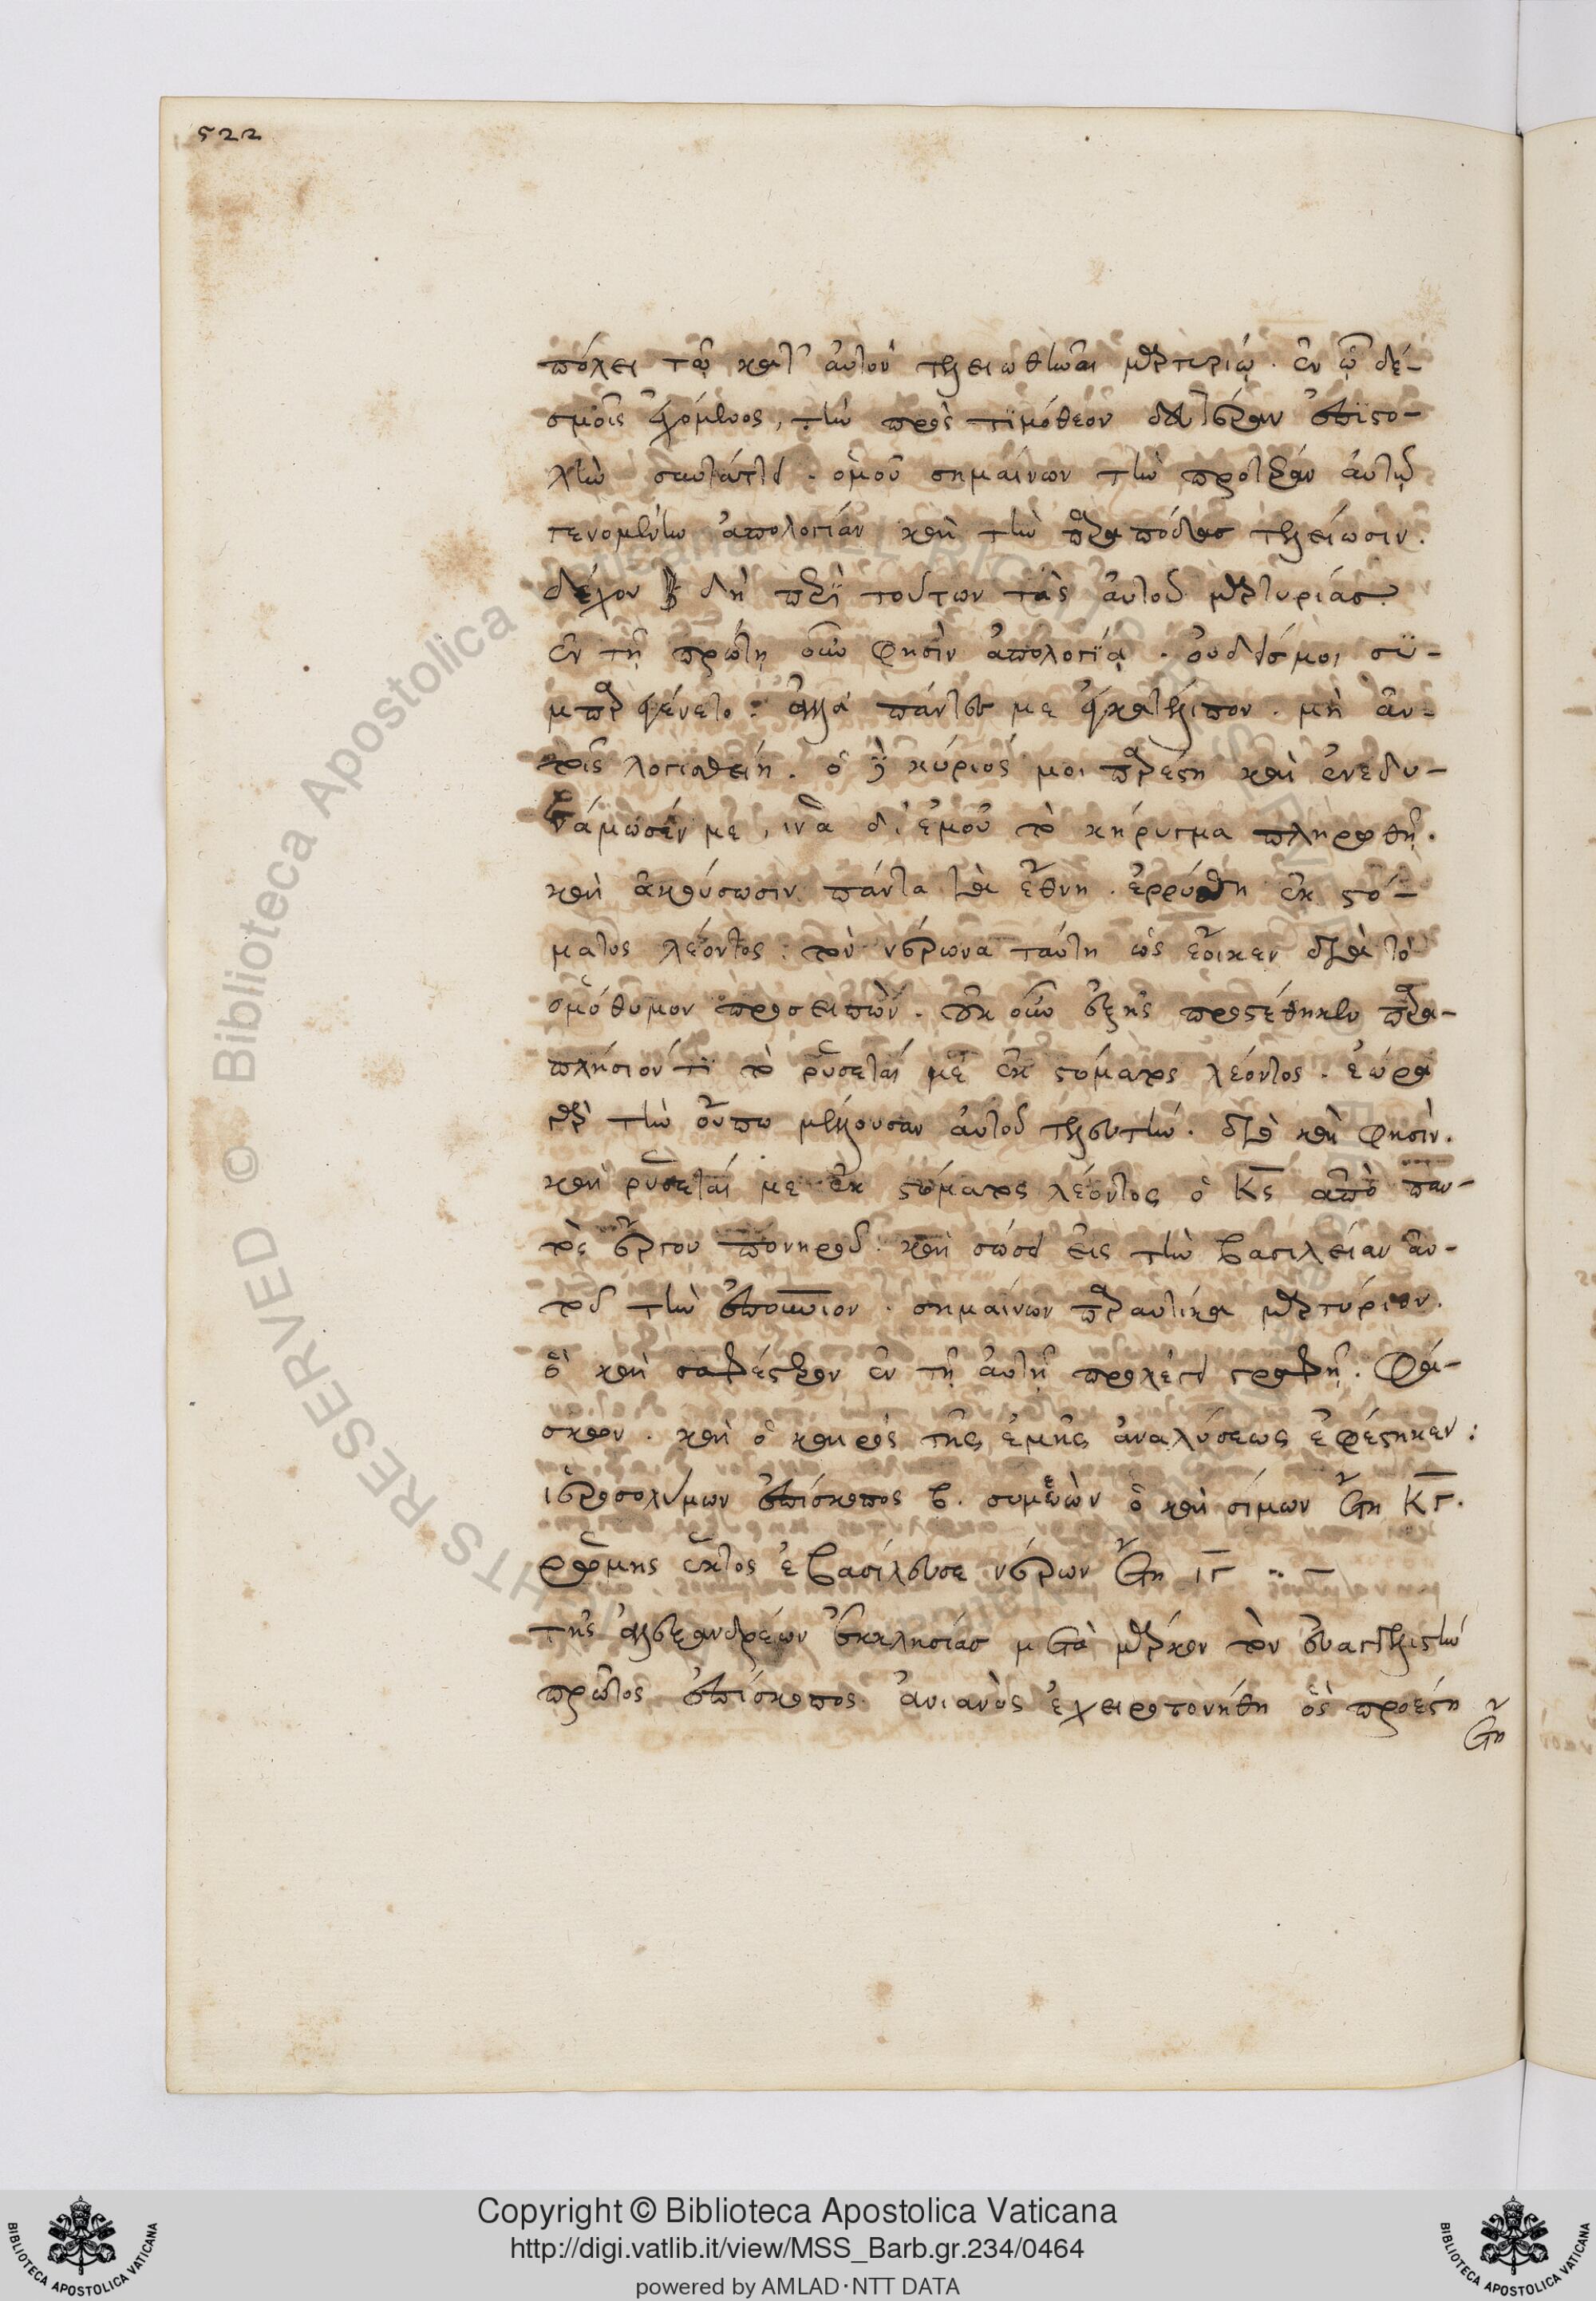 522
πόλει τῷ κατ' αὐτὸν τελειωθῆναι μαρτυρίῳ. ἐν ᾧ δέ-
σμοῖς ἐχόμενος, τὴν πρὸς τιμόθεον δευτέραν ἐπιστο-
λὴν συντάττει. ὁμοῦ σημαίνων τὴν προτέραν αὐτῷ
γενομένην ἀπολογίαν καὶ τὴν παραπόδας τελείωσιν.
δέχου δὴ περὶ τούτων τὰς αὐτοῦ μαρτυρίας.
ἐν τῇ πρώτῃ οὖν φησὶν ἀπολογίᾳ. οὐδείς μοι συ-
μπαρεγένετο. ἀλλὰ πάντες με ἐγκατέλιπον. μὴ αὐ-
τοῖς λογισθείη. ὁ δὲ κύριός μοι παρέστη καὶ ἐνεδυ-
νάμωσέν με, ἵνα δι' ἐμοῦ τὸ κήρυγμα πληροθῇ.
καὶ ἀκούσωσιν πάντα τὰ ἔθνη. ἐρρύσθη ἐκ στό-
ματος λέοντος. τὸν νέρωνα ταύτη ὡς ἔοικεν διὰ τὸ
ὀμόθυμον προσειπών. οὐκ οὖν ἑξῆς προστέθηκεν παρα-
πλήσιόν τι τὸ ῥύσεταί με ἐκ στόματος λέοντος. ἑώρα
γὰρ τὴν οὔπω μέλλουσαν αὐτοῦ τελευτήν. διὸ καὶ φησὶν.
καὶ ῥύσεταί με ἐκ στόματος λέοντος ὁ Κς ἀπὸ παν-
τὸς ἔργου πονηροῦ. καὶ σώσει εἰς τὴν βασιλείαν αὐ-
τοῦ τὴν ἐπουράνιον. σημαίνων παραυτίκα μαρτύριον.
ὃ καὶ σαφέστερον ἐν τῇ αὐτῇ προλέγει γραφῇ. φά-
σκων. καὶ ὁ καιρὸς τῆς ἐμῆς ἀναλύσεως ἐφέστηκεν:
ἱεροσολύμων ἐπίσκοπος β. συμεὼν ὁ καὶ σίμων ἔτη ΚΓ.
ρώμης ἕκτος ἐβασίλευσε νέρων ἔτη ΙΓ
τῆς ἀλεξανδρέων ἐκκλησίας μετὰ μάρκον τὸν εὐαγγελιστὴν
πρῶτος ἐπίσκοπος ἀνιανὸς ἐχειροτονήθη ὃς προέστη
ἔτη
Copyright © Biblioteca Apostolica Vaticana
http://digi.vatlib.it/view/MSS_Barb.gr.234/0464
powered by AMLAD·NTT DATA